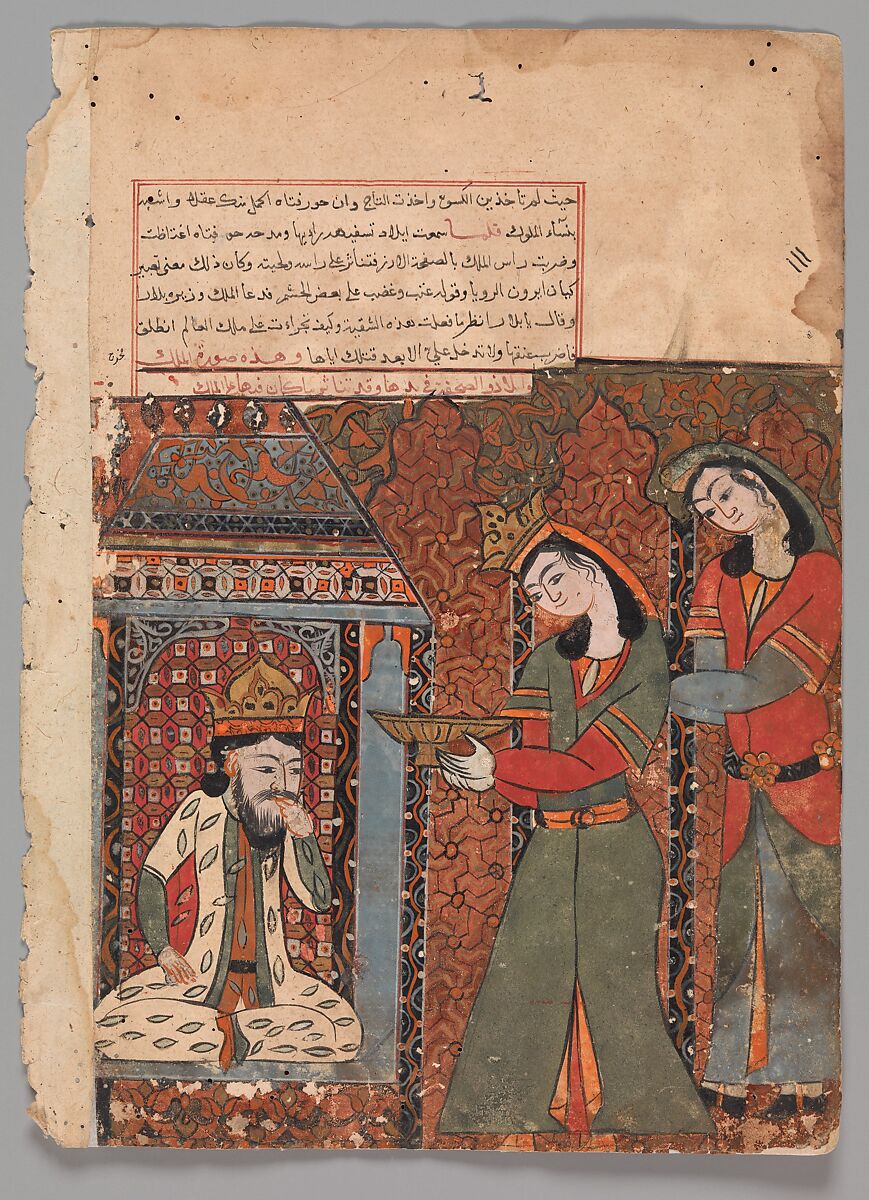 حيث لم تاخذين الكسوة واخذت التاج وان حورفتاه اكمل منك عقلا واشبه
بنسآء الملوك فلما سمعت ايلاد تسفيهه رايها ومدحه حورفتاه اغتاظت
وضربت راس الملك بالصحفة الارز فتناثر على راسه ولحيته وكان ذلك معنى تعبير
كباذ ايرون الرويا وقوله عتب وغضب على بعض الحشم فدعا الملك وزيره بلارا
وقال يا بلار انظر ما فعلت هذه الشقية وكيف تجراءت على ملك العالم انطلق
فاضرب عنقها ولا تدخل علي الا بعد قتلك اياها وهذه صورة الملك
وايلاذ والصحفة في يدها وقد تناثر ما كان فيها على الملك